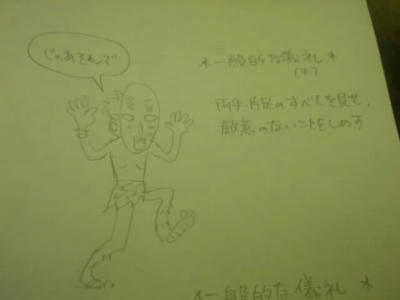 じゃあそれで
*一般的な儀礼*
両手片足のすべてを見せ、
敵意のないことをしめす
*一般的な儀礼*